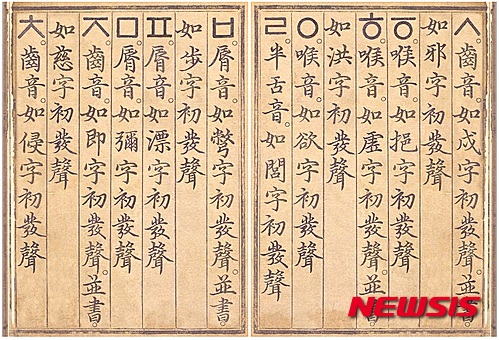 ㅂ脣音。如彆字初發聲。並書。
如步字初發聲
ㅍ脣音。如漂字初發聲
ㅁ脣音。如彌字初發聲
ㅈ齒音。如即字初發聲。並書。
如慈字初發聲
ㅊ齒音。如侵字初發聲
ㅅ齒音。如戌字初發聲。並書。
如邪字初發聲
ㆆ喉音。如挹字初發聲
ㅎ喉音。如虛字初發聲。並書。
如洪字初發聲
ㅇ喉音。如欲字初發聲
ㄹ半舌音。如閭字初發聲
NEWSIS